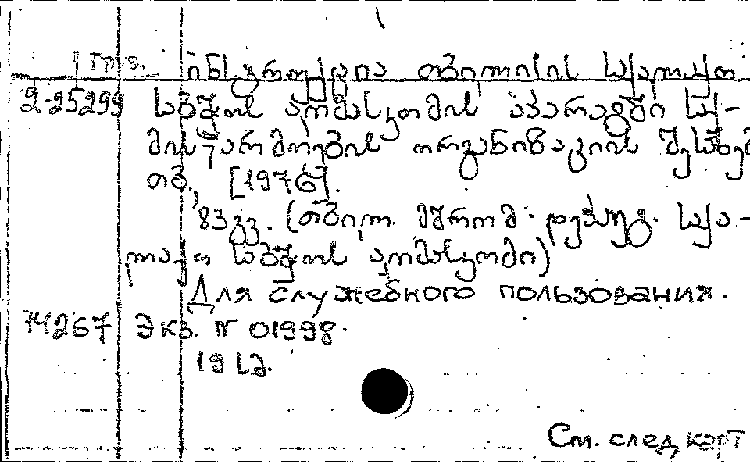 Груз. ინსტრუქცია თბილისის საქალაქო
2-25299 საბჭოს აღმასკომის აპარატში საქ-
მისწარმოების ორგანიზაციის შესახებ
თბ., [1976].
83 გვ. (თბილ. მშრომ. დეპუტ. საქა-
ლაქო საბჭოს აღმასკომი)
Для служебного пользования.
14267 Экз. № 01998.
См. след карт